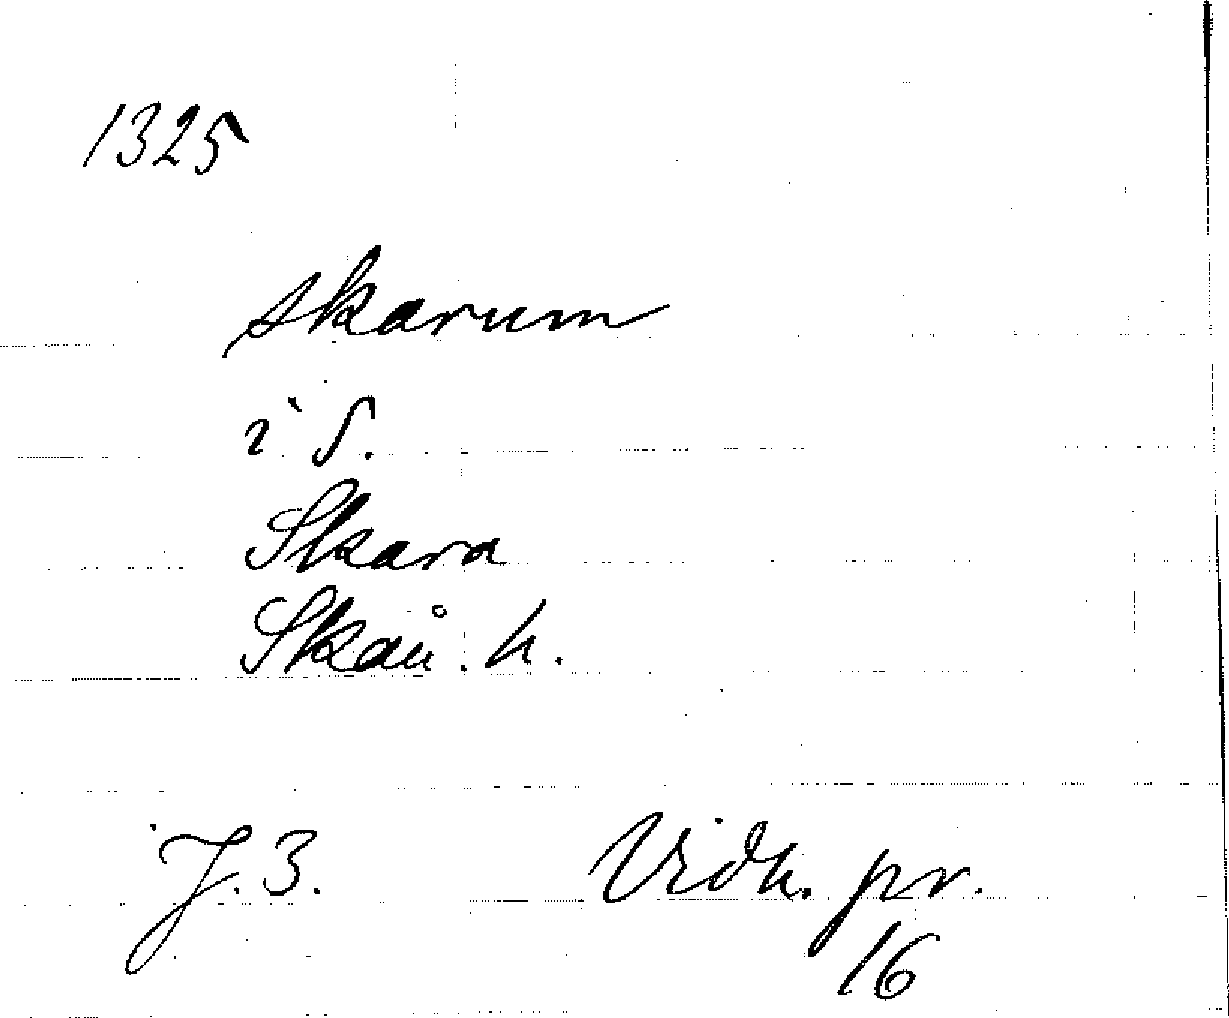 1325
skarum
i S.
Skara
Skån. h.
J. 3. Vidh. pr.
16